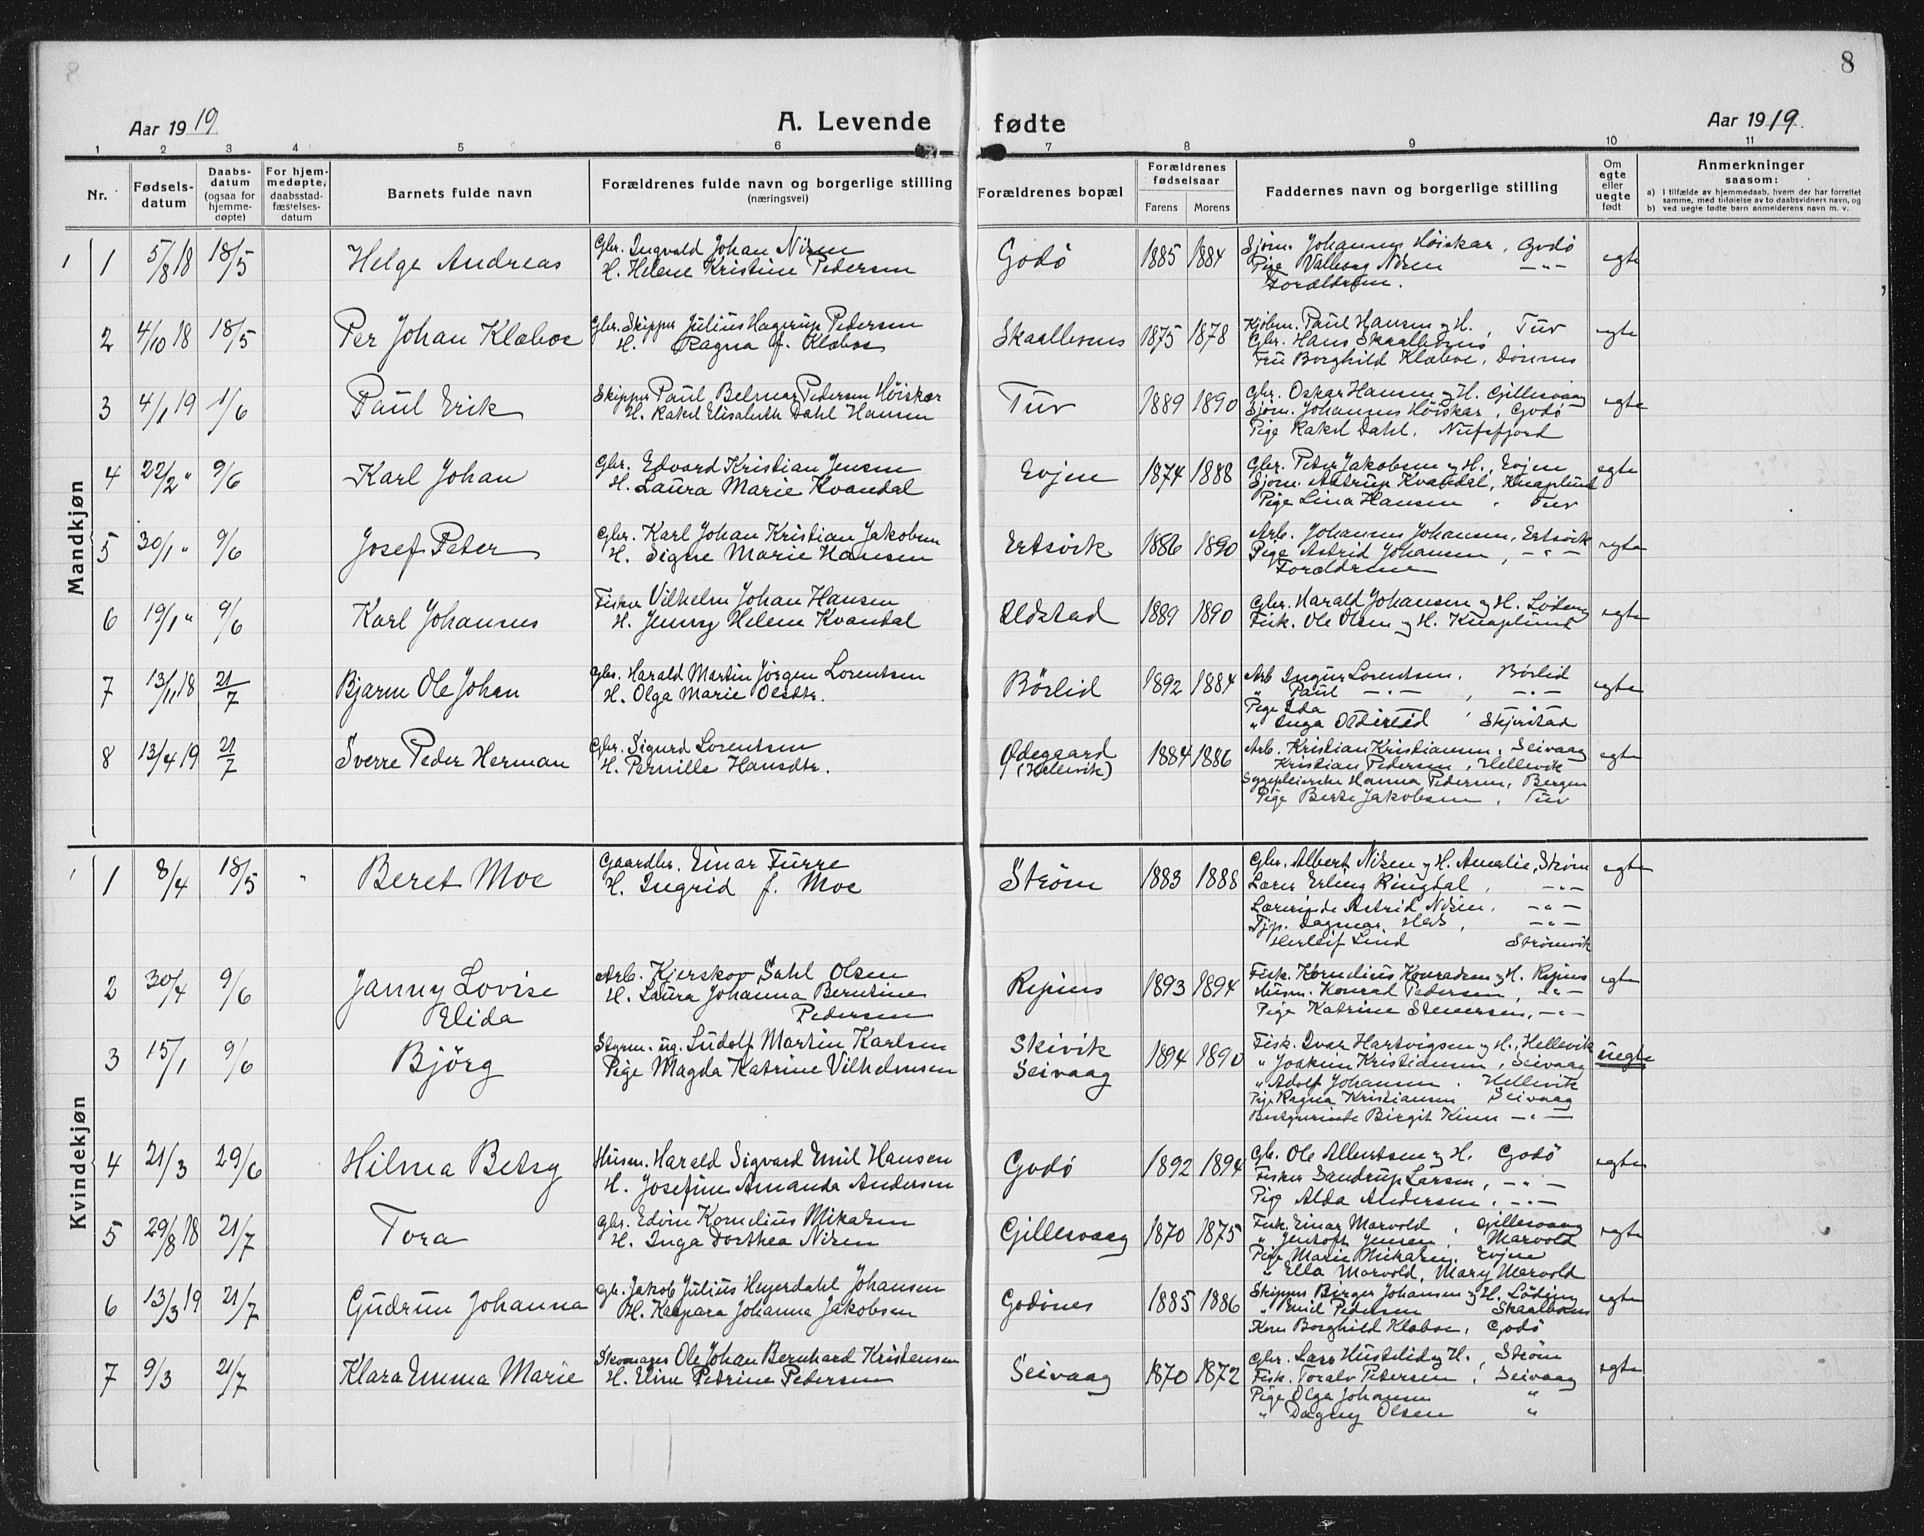 8
Aar 1919
A. Levende fødte
Aar 1919.
1 2 3 4 5 6 7 8 9 10 11
Nr.
Fødsels-
datum
Daabs-
datum
(ogsaa for
hjemme-
døpte)
For hjem-
medøpte,
daabsstad-
fæstelses-
datum
Barnets fulde navn
Forældrenes fulde navn og borgerlige stilling
(næringsvei)
Forældrenes bopæl
Forældrenes
fødselsaar
Farens Morens
Faddernes navn og borgerlige stilling
Om
egte
eller
uegte
født
Anmerkninger
saasom:
a) I tilfælde av hjemmedaab, hvem der har forrettet
samme, med tilføielse av to daabsvidners navn, og
b) ved uegte fødte barn anmelderens navn m. v.
Mandkjøn
1 1 5/8 18 18/5 Helge Andreas
Gbr. Ingvald Johan Nilsen
H. Helene Kristine Pedersen
Godø 1885 1884
Sjøm. Johannes Høiskar, Godø
Pige Valborg Nilsen —"—
Forældrene.
egte
2 4/10 18 18/5 Per Johan Klæboe
Gbr. Skipper Julius Hagerup Pedersen
H. Ragna f. Klæboe
Skaalbones 1875 1878
Kjøbm. Paul Hansen og H., Tuv
Gbr. Hans Skaalbones
Fru Borghild Klæboe, Dønnes
egte
3 4/1 19 1/6 Paul Erik
Skipper Paul Belmar Pedersen Høiskar
H. Rakel Elisabeth Dahl Hansen
Tuv 1889 1890
Gbr. Oskar Hansen og H. Gillesvaag
Sjøm. Johannes Høiskar, Godø
Pige Rakel Dahl, Nufsfjord
egte
4 22/2 " 9/6 Karl Johan
Gbr. Edvard Kristian Jensen
H. Laura Marie Kvandal
Evjen 1874 1888
Gbr. Peter Jakobsen og H., Evjen
Sjøm. Astrup Kvandal, Knaplund
Pige Lina Hansen, Tuv
egte
5 30/1 " 9/6 Josef Peter
Gbr. Karl Johan Kristian Jakobsen
H. Signe Marie Hansen
Ertsvik 1886 1890
Arb. Johannes Johansen, Ertsvik
Pige Astrid Johansen, —"—
Forældrene
egte
6 19/1 " 9/6 Karl Johannes
Fisker Vilhelm Johan Hansen
H. Jenny Helene Kvandal
Oldstad 1889 1890
Gbr. Harald Johansen og H. Løding
Fisk. Ole Olsen og H. Knaplund
egte
7 13/11 18 21/7 Bjarne Ole Johan
Gbr. Harald Martin Jørgen Lorentsen
H. Olga Marie Olsdtr.
Børlid 1892 1884
Arb Ingus Lorentsen, Børlid
" Paul —"—, —"—
Pige Ida
" Inga Olderlid, Skjerstad
egte
8 13/4 19 21/7 Sverre Peder Herman
Gbr. Sigurd Lorentsen
H. Pernille Hansdtr.
Ødegaard
(Hellevik)
1884 1886
Arb. Kristian Kristiansen, Seivaag
Kristian Pedersen, Hellevik
Sygepleierske Hanna Pedersen, Bergen
Pige Berte Jakobsen, Tuv
egte
Kvindekjøn
1 1 8/4 18/5 " Beret Moe
Gaardbr. Einar Furre
H. Ingrid f. Moe
Strøm 1883 1888
Gbr. Albert Nilsen og H. Amalie, Strøm
Lærer Erling Ringdal, —"—
Lærerinde Astrid Nilsen, —"—
Tjp. Dagmar —"—
Herleif Lind Strømvik
egte
2 30/4 9/6 Janny Lovise
Elida
Arb. Kjerskov Dahl Olsen
H. Laura Johanna Berntine
Pedersen
Ripnes 1893 1894
Fisk. Kornelius Konradsen og H. Ripnes
Husm. Konrad Pedersen, —"—
Pige Katrine Stenersen, —"—
egte
3 15/1 9/6 Bjørg
Styrm. ug. Ludolf Martin Karlsen
Pige Magda Katrine Vilhelmsen
Skivik
Seivaag
1894 1890
Fisk. Ivar Hartvigsen og H., Hellevik
" Joakim Kristiansen, Seivaag
" Adolf Johansen, Hellevik
Pige Ragna Kristiansen Seivaag
Bestyrerinde Birgit Kinn —"—
uegte
4 21/3 29/6 Hilma Betsy
Husm. Harald Sigvard Emil Hansen
H. Josefine Amanda Andersen
Godø 1892 1894
Gb. Ole Albertsen og H. Godø
Fisker Sandrup Larsen, —"—
Pige Alda Andersen, —"—
egte
5 29/8 18 21/7 Tora
Gbr. Edvin Kornelius Mikalsen
H. Inga Dorthea Nilsen
Gillesvaag 1870 1875
Fisk. Einar Marvold, Gillesvaag
" Jentoft Jensen, Marvold
Pige Marie Mikalsen, Evjen
" Ella Marvold, Mary Marvold
egte
6 13/3 19 21/7 Gudrun Johanna
Gbr. Jakob Julius Heyerdahl Johansen
H. Kaspara Johanna Jakobsen
Godønes 1885 1886
Skipper Birger Johansen og H. Løding
" Emil Pedersen Skaalbones
Borghild Klæboe, Godø
egte
7 9/3 21/7 Klara Emma Marie
Skomager Ole Johan Bernhard Kristensen
H. Eline Petrine Pedersen
Seivaag 1870 1872
Gbr. Lars Hustelid og H., Strøm
Fisk. Toralv Petersen, Seivaag
Pige Olga Johansen "
" Dagny Olsen "
egte